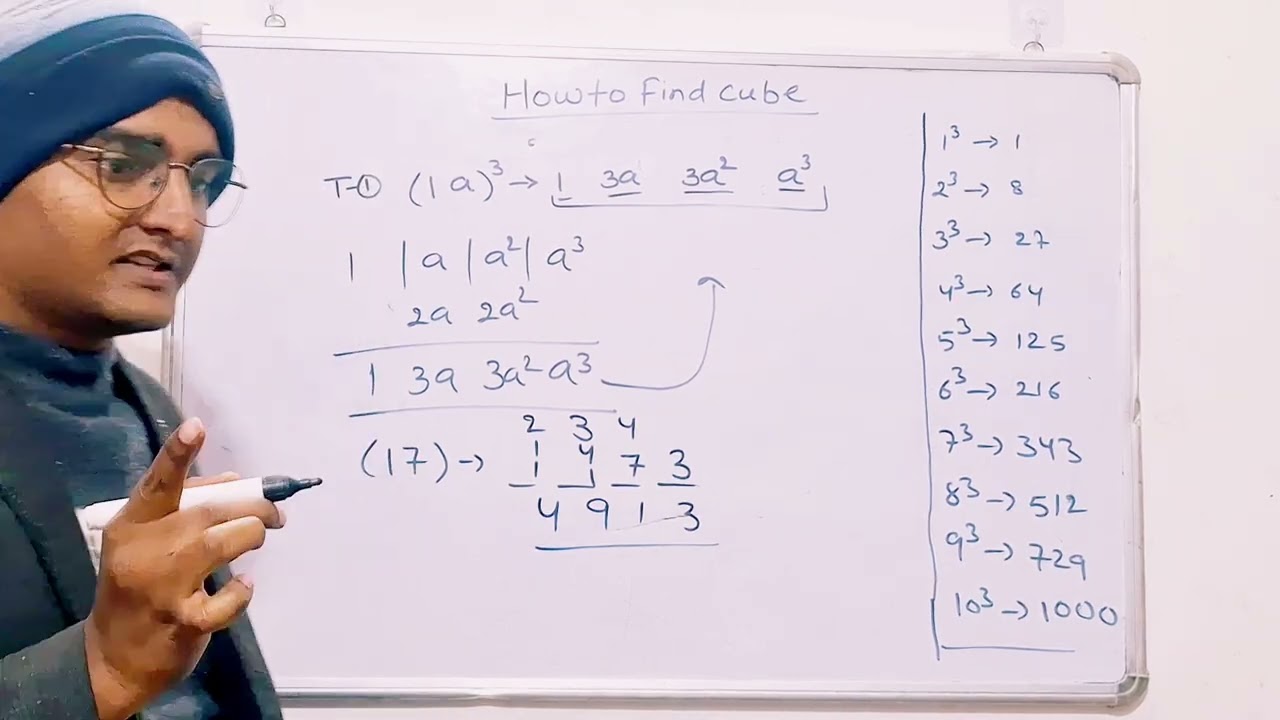 How to find cube
T-① (1 a)³ → 1 3a 3a² a³
1 | a | a² | a³
2a 2a²
1 3a 3a² a³
2 3 4
(17) → 1 4 7 3
1 1
4 9 1 3
1³ → 1
2³ → 8
3³ → 27
4³ → 64
5³ → 125
6³ → 216
7³ → 343
8³ → 512
9³ → 729
10³ → 1000